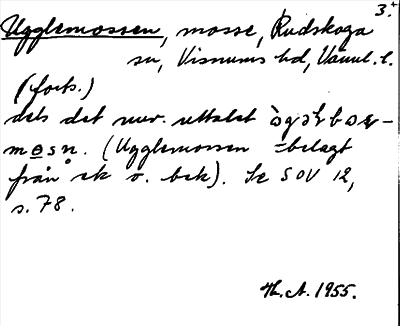 3.
Ugglemossen, mosse, Rudskoga
sn, Visnums hd, Värml. l.
(forts.)
dels det nuv. uttalet
mosn. (Ugglemossen =belagt
från ek o. bek). Se SOV 12,
s. 78.
Th. A. 1955.